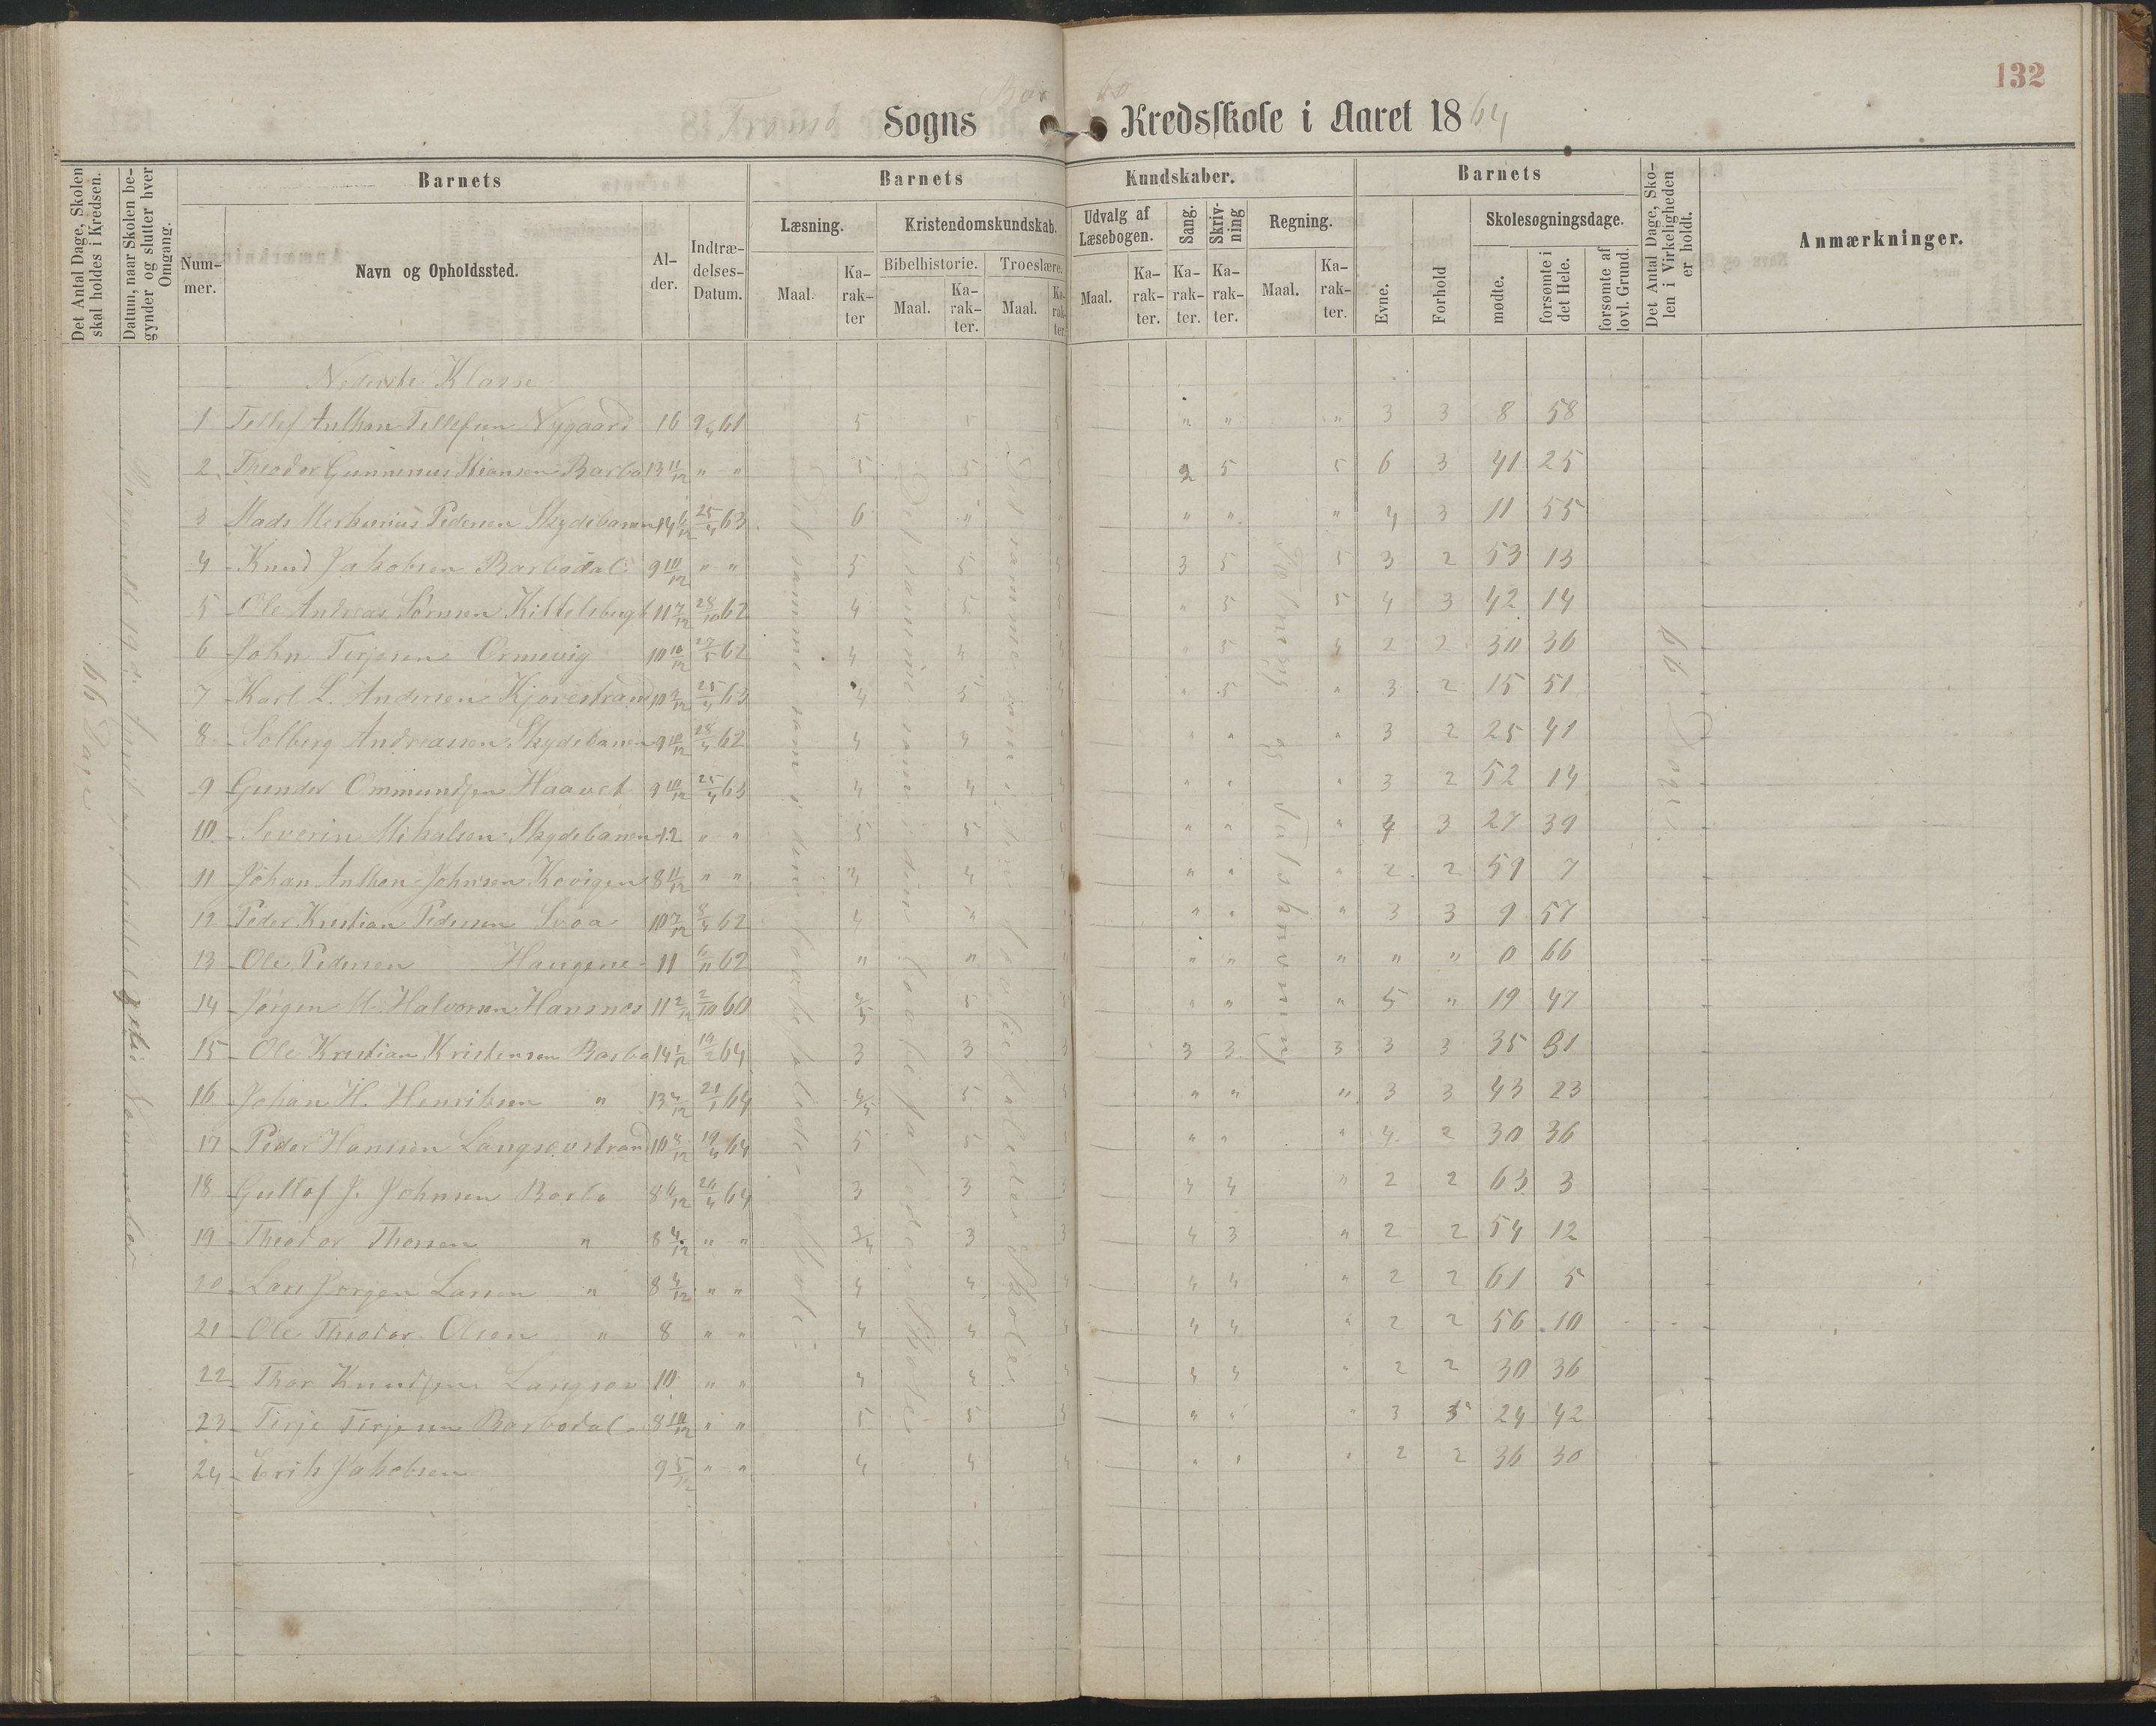 132
Tromø Sogns Barbo Kredsskole i Aaret 1864
Det Antal Dage, Skolen skal holdes i Kredsen.
Datum, naar Skolen begynder og slutter hver Omgang.
Barnets
Nummer.
Navn og Opholdssted.
Alder.
Indtrædelses-Datum.
Barnets Kundskaber.
Læsning.
Maal.
Karakter
Kristendomskundskab.
Bibelhistorie.
Maal.
Karakter.
Troeslære.
Maal.
Karakter.
Udvalg af Læsebogen.
Maal.
Karakter.
Sang.
Karakter.
Skrivning
Karakter.
Regning.
Maal.
Karakter.
Barnets
Evne.
Forhold
Skolesøgningsdage.
mødte.
forsømte i det Hele.
forsømte af lovl. Grund.
Det Antal Dage, Skolen i Virkeligheden er holdt.
Anmærkninger.
66 Dage
November
Det samme som i den foregaaende Skole
66 Dage
Nederste Klasse
1 Tellef Anthon Tellefsen Nygaard 16 9/4 61 5 5 5 " " " 3 3 8 58
2 Theodor Gunnerius Stiansen Barbo 13 11/12 " " 5 5 5 2 5 5 6 3 41 25
3 Mads Merkurius Pedersen Skydebanen 14 6/12 25/4 63 6 " " " " 4 3 11 55
4 Knud Jakobsen Barbodal 9 10/12 " " 5 5 5 3 5 5 3 2 53 13
5 Ole Andreas Sørensen Kittelsbugt 11 7/12 28/10 62 4 5 5 " 5 5 4 3 42 14
6 John Terjesen Ormevig 10 10/12 27/5 62 4 4 4 " 5 4 2 2 30 36
7 Karl L. Andersen Kjorestrand 10 2/12 25/4 63 4 5 4 " 5 " 3 2 15 51
8 Solberg Andreassen Skydebanen 9 10/12 28/4 62 4 4 " " " 3 2 25 41
9 Gunder Ommundsen Haavet 9 10/12 25/4 63 4 4 " " " 3 2 52 14
10 Severin Mikalsen Skydebanen 12 " " 5 5 " " " 4 3 27 39
11 Johan Anthon Johnsen Kovigen 8 11/12 " " 4 4 4 " " " 2 2 59 7
12 Peder Kristian Pedersen Svoa 10 7/12 8/4 62 4 " " " " 3 3 9 57
13 Ole Pedersen Haugene 11 6/11 62 " " " " " " " 0 66
14 Jørgen M. Halvorsen Hansnes 11 2/12 2/10 60 4/5 5 5 " " " 5 " 19 47
15 Ole Kristian Kristensen Barbo 14 1/12 19/2 64 3 3 3 3 3 3 3 3 35 31
16 Johan H. Henriksen " 13 4/12 21/1 64 4/5 5 " " " 3 3 43 23
17 Peder Hansen Langsævstrand 10 8/12 19/4 64 5 5 5 " " " 4 2 30 36
18 Gustaf J. Johnsen Barbo 8 6/12 26/4 64 3 3 3 4 4 " 2 2 63 3
19 Theodor Thorsen " 8 4/12 " " 3/4 3 3 4 3 " 2 2 54 12
20 Lars Jørgen Larsen " 8 4/12 " " 4 4 4 4 4 " 2 2 61 5
21 Ole Theodor Olsen " 8 " " 4 4 4 4 4 " 2 2 56 10
22 Thor Knudsen Langsæv 10 " " 4 4 4 4 4 " 2 2 30 36
23 Terje Terjesen Barbodal 8 10/12 " " 5 5 5 " " " 3 3 24 42
24 Erik Jakobsen 9 5/12 " " 4 4 4 " " " 2 2 36 30